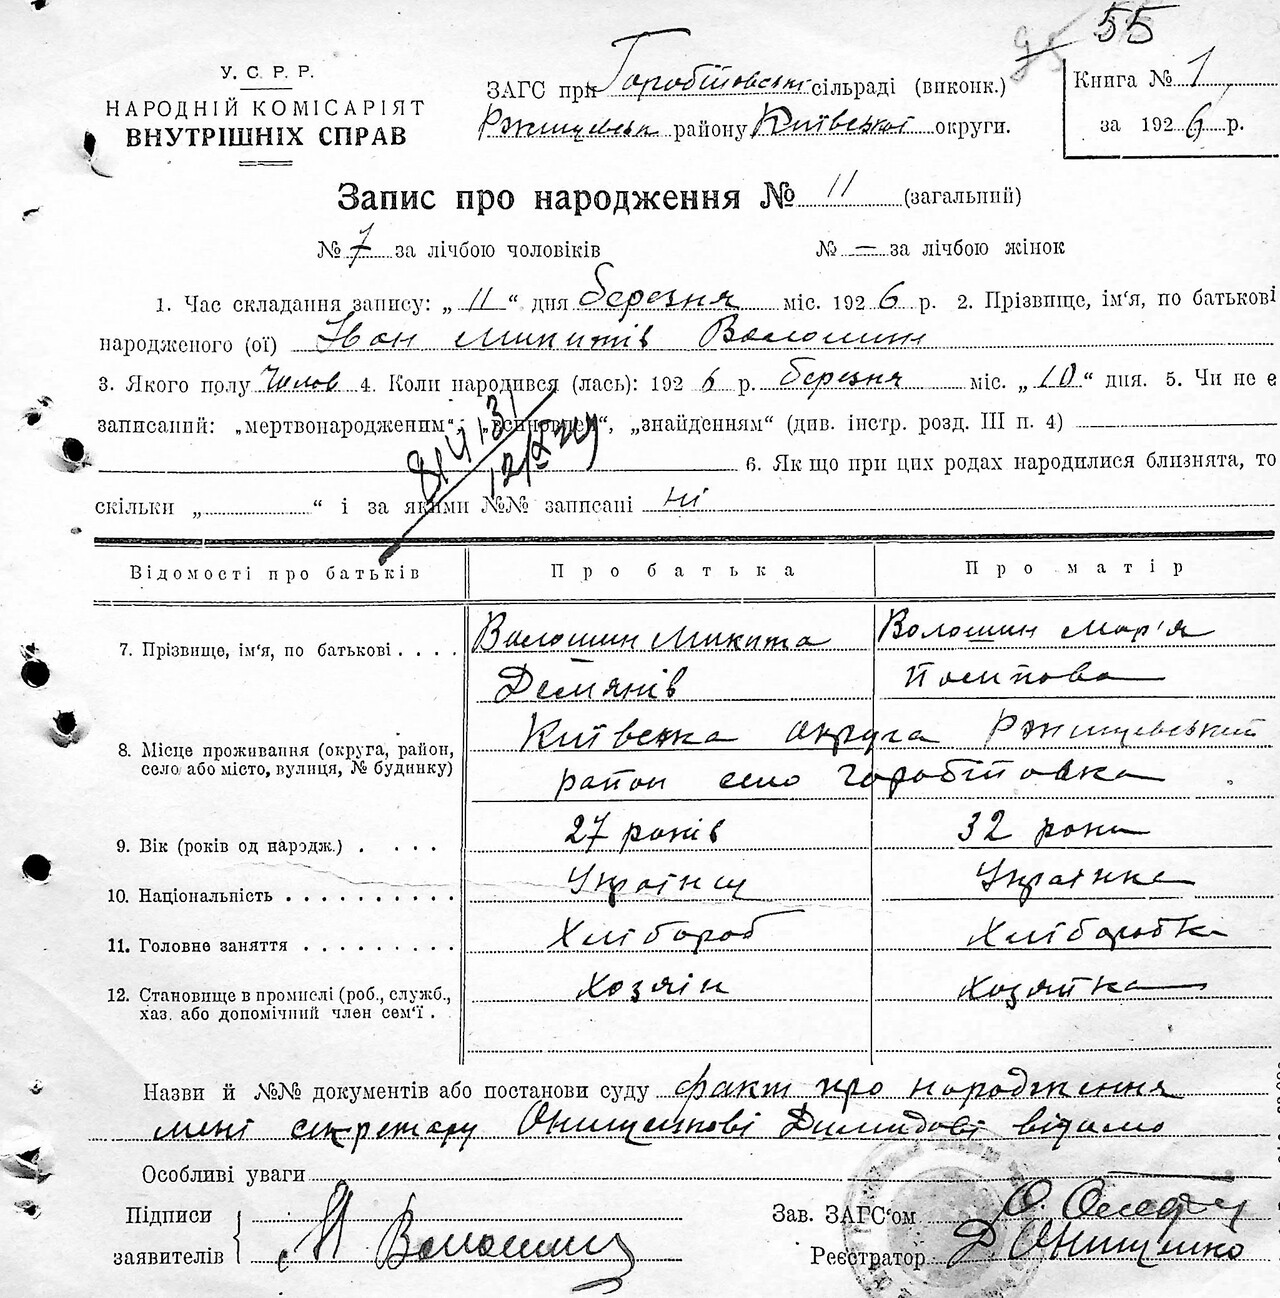 55
У. С. Р. Р.
НАРОДНІЙ КОМІСАРІЯТ
ВНУТРІШНІХ СПРАВ
ЗАГС при Горобіївські сільраді (виконк.)
Ржищевськ району Київської округи.
Книга № 1
за 1926 р.
Запис про народження № 11 (загальний)
№ 7 за лічбою чоловіків № — за лічбою жінок
1. Час складання запису: „ 11 “ дня березня міс. 1926 р. 2. Прізвище, ім'я, по батькові
народженого (ої) Іван Микитів Волошин
3. Якого полу Чолов 4. Коли народився (лась): 1926 р. березня міс. „ 10 “ дня. 5. Чи не є
записаний: „мертвонародженим“, „ “, „знайденням“ (див. інстр. розд. III п. 4)
6. Як що при цих родах народилися близнята, то
скільки „ “ і за якими №№ записані ні
Відомості про батьків Про батька Про матір
7. Прізвище, ім'я, по батькові . . . . Волошин Микита Волошин Мар'я
Демянів Посипова
8. Місце проживання (округа, район, село або місто, вулиця, № будинку) Київська округа Ржищевський
район село Горобіївка
9. Вік (років од народж.) . . . . 27 років 32 роки
10. Національність . . . . . . . . . . Українц Українка
11. Головне заняття . . . . . . . . . Хлібороб Хліборобка
12. Становище в промислі (роб., служб., Хозяін Хозяйка
хаз. або допомічний член сем'ї .
Назви й №№ документів або постанови суду факт про народження
мені секретару Онищенкові Димидові відомо
Особливі уваги
Підписи
заявителів М Волошин
Зав. ЗАГС'ом О.
Реєстратор Д Онищенко